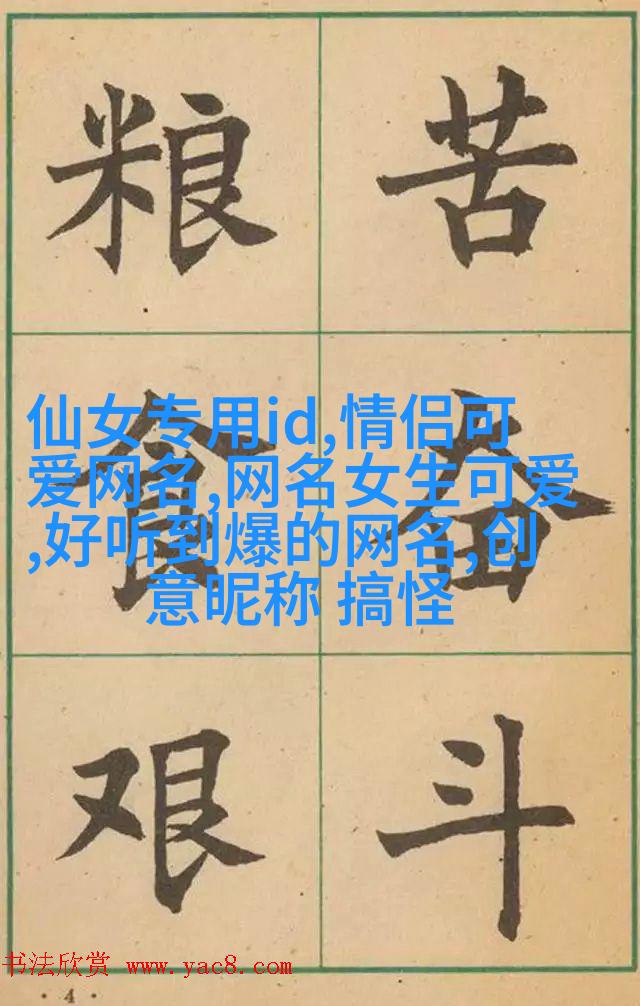 粮 苦
食 奋
艰 斗
仙女专用id,情侣可
爱网名,网名女生可爱
,好听到爆的网名,创
意昵称 搞怪
书法欣赏 www.yac8.com
· 4 ·